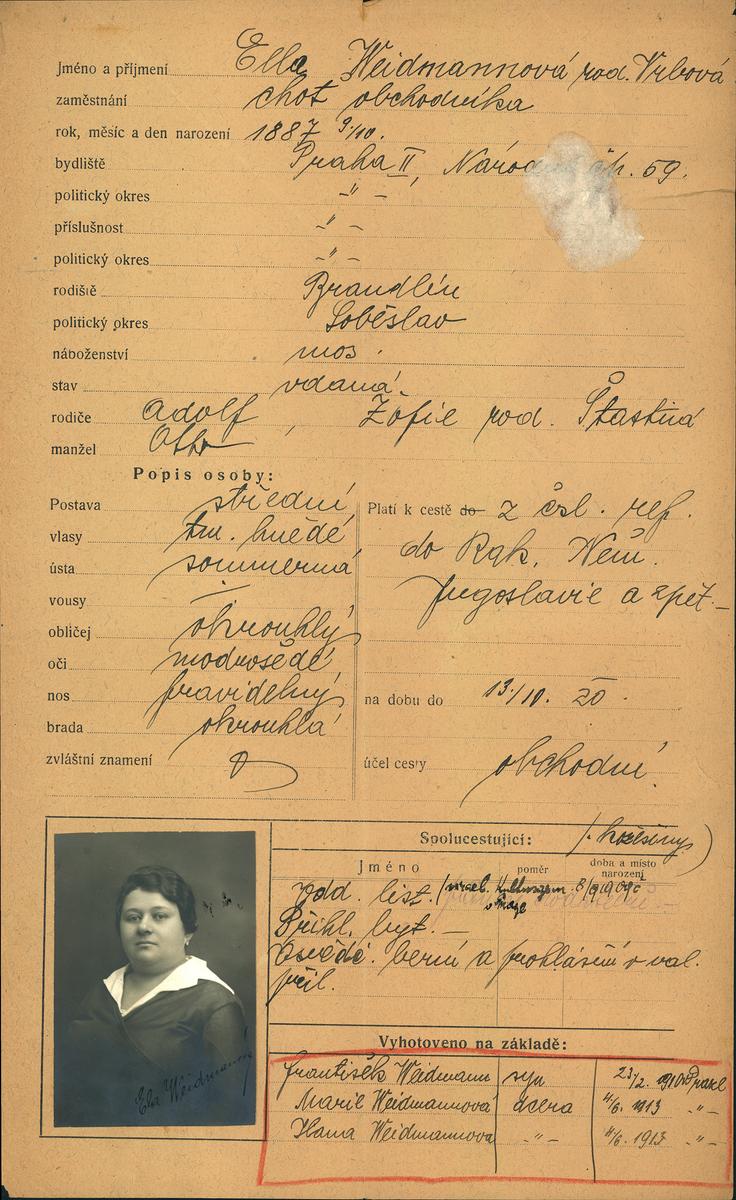 Jméno a příjmení Ella Weidmannová rod. Vrbová
zaměstnání choť obchodníka
rok, měsíc a den narození 1887 9/10.
bydliště Praha II, Národní čp. 59.
politický okres -"-
příslušnost -"-
politický okres -"-
rodiště Brandlín
politický okres Soběslav
náboženství mos.
stav vdaná.
rodiče Adolf, Žofie rod. Šťastná
manžel Otto
Popis osoby:
Postava střední
vlasy tm. hnědé
ústa souměrná
vousy —
obličej okrouhlý
oči modrošedé
nos pravidelný
brada okrouhlá
zvláštní znamení
Platí k cestě do z čsl. rep.
do Rak. Něm.
Jugoslavie a zpět.—
na dobu do 13./10. 20.
účel cesty obchodní.
Spolucestující: /. kožešiny)
Jméno poměr doba a místo narození
Odd. list.
Přihl. byt. —
Osvědč. berní a prohlášení o val.
příl.
Vyhotoveno na základě:
František Weidmann syn 23/2. 1910 Praze
Marie Weidmannová dcera 4/6. 1913 -"-
Hana Weidmannova -"- 4/6. 1913 -"-
Ela Weidmannová